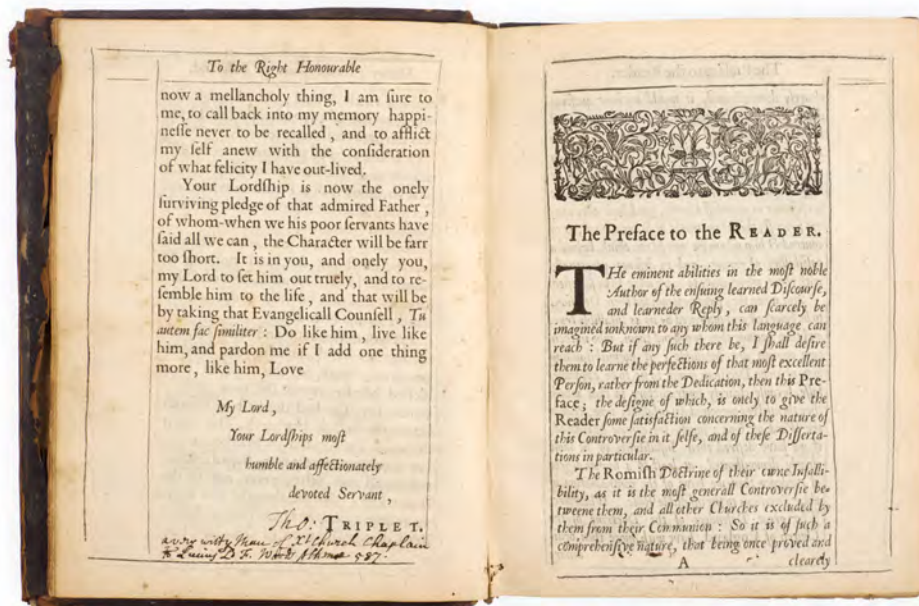 To the Right Honourable
now a mellancholy thing, I am ſure to
me, to call back into my memory happi-
neſſe never to be recalled, and to afflict
my ſelf anew with the conſideration
of what felicity I have out-lived.
Your Lordſhip is now the onely
ſurviving pledge of that admired Father,
of whom-when we his poor ſervants have
ſaid all we can, the Character will be farr
too ſhort. It is in you, and onely you,
my Lord to ſet him out truely, and to re-
ſemble him to the life, and that will be
by taking that Evangelicall Counſell, Tu
autem fac ſimiliter: Do like him, live like
him, and pardon me if I add one thing
more, like him, Love
My Lord,
Your Lordſhips moſt
humble and affectionately
devoted Servant,
Tho: TRIPLET.
a very witty Man of Xt Church Chaplain
F. Wood Athenæ 587.
The Preface to the READER.
THe eminent abilities in the moſt noble
Author of the enſuing learned Diſcourſe,
and learneder Reply, can ſcarcely be
imagined unknown to any whom this language can
reach: But if any ſuch there be, I ſhall deſire
them to learne the perfections of that moſt excellent
Perſon, rather from the Dedication, then this Pre-
face; the deſigne of which, is onely to give the
Reader ſome ſatisfaction concerning the nature of
this Controverſie in it ſelfe, and of theſe Diſſerta-
tions in particular.
The Romiſh Doctrine of their owne Infalli-
bility, as it is the moſt generall Controverſie be-
tweene them, and all other Churches excluded by
them from their Communion: So it is of ſuch a
comprehenſive nature, that being once proved and
A clearely